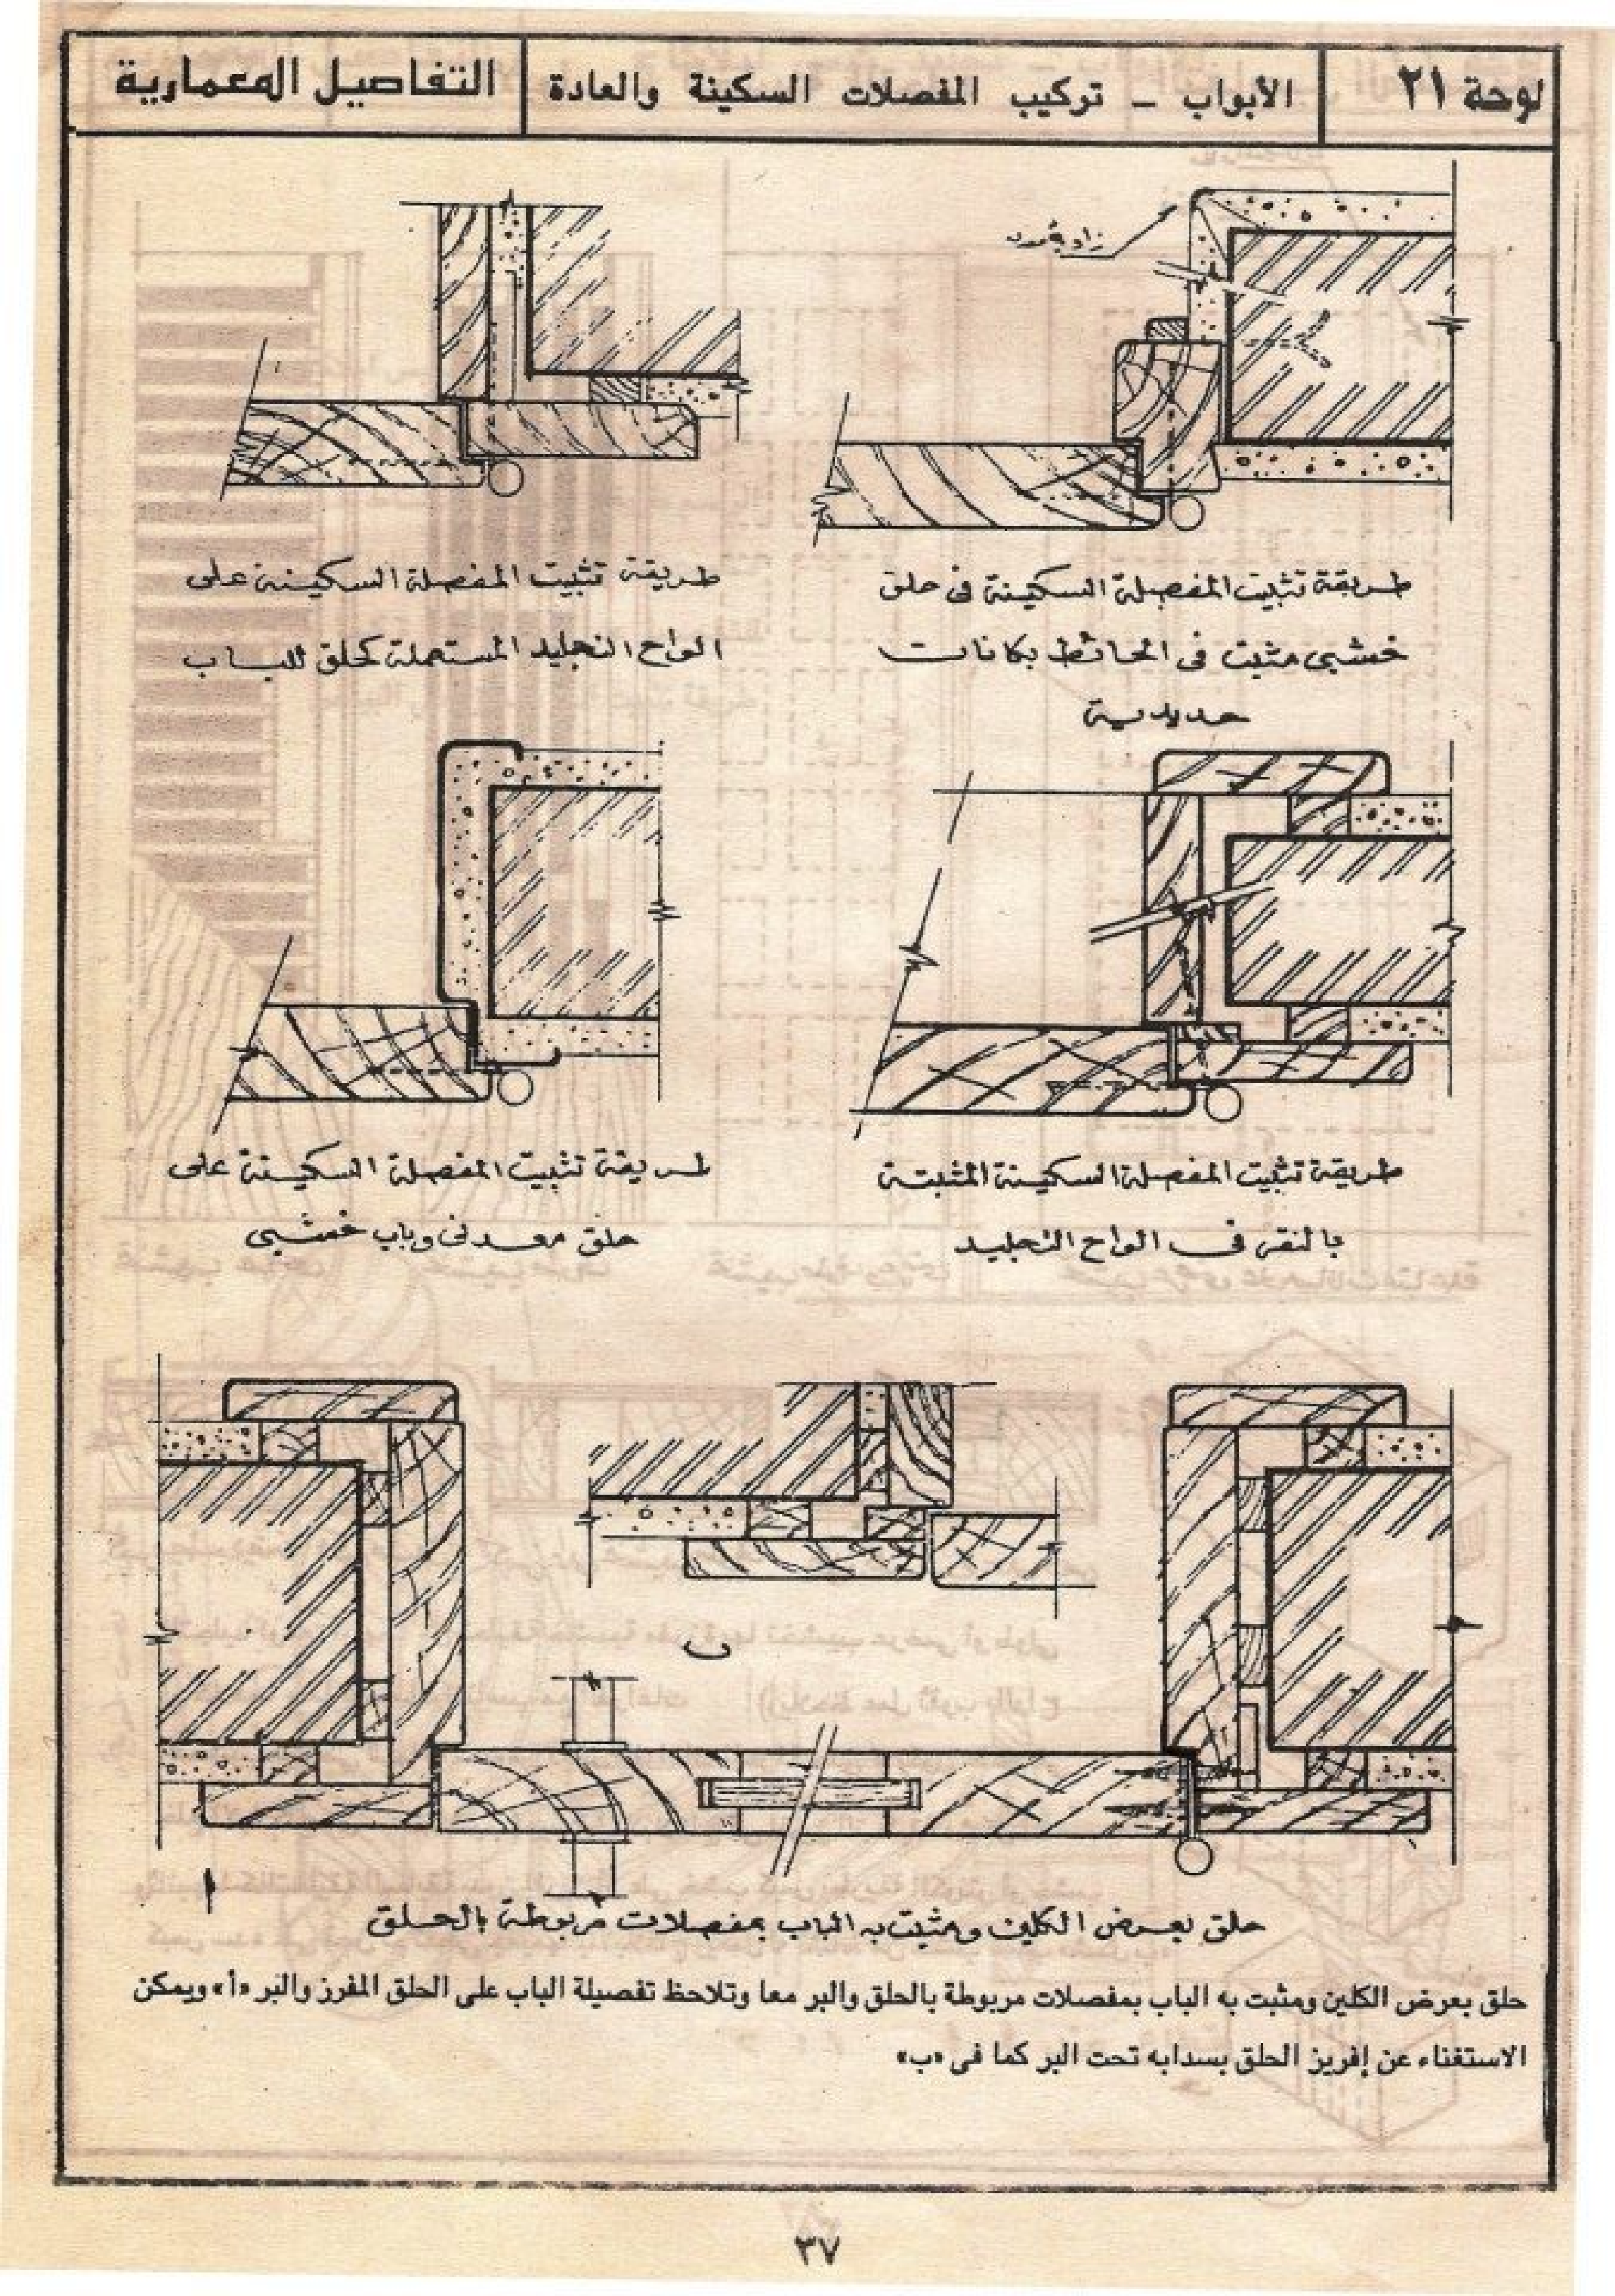 لوحة ٢١
الأبواب – تركيب المفصلات السكينة والعادة
التفاصيل المعمارية
زاوية
طريقة تثبيت المفصلة السكينة فى حلق
خشبى مثبت فى الحائط بكانات
حديدية
طريقة تثبيت المفصلة السكينة على
الواح التجليد المستعملة كحلق للباب
طريقة تثبيت المفصلة السكينة المثبتة
بالنقر فى الواح التجليد
طريقة تثبيت المفصلة السكينة على
حلق معدنى وباب خشبى
ب
أ
حلق بعرض الكلين ومثبت به الباب بمفصلات مربوطة بالحلق
حلق بعرض الكلين ومثبت به الباب بمفصلات مربوطة بالحلق والبر معا وتلاحظ تفصيلة الباب على الحلق المفرز والبر «أ» ويمكن
الاستغناء عن إفريز الحلق بسدابه تحت البر كما فى «ب»
٣٧